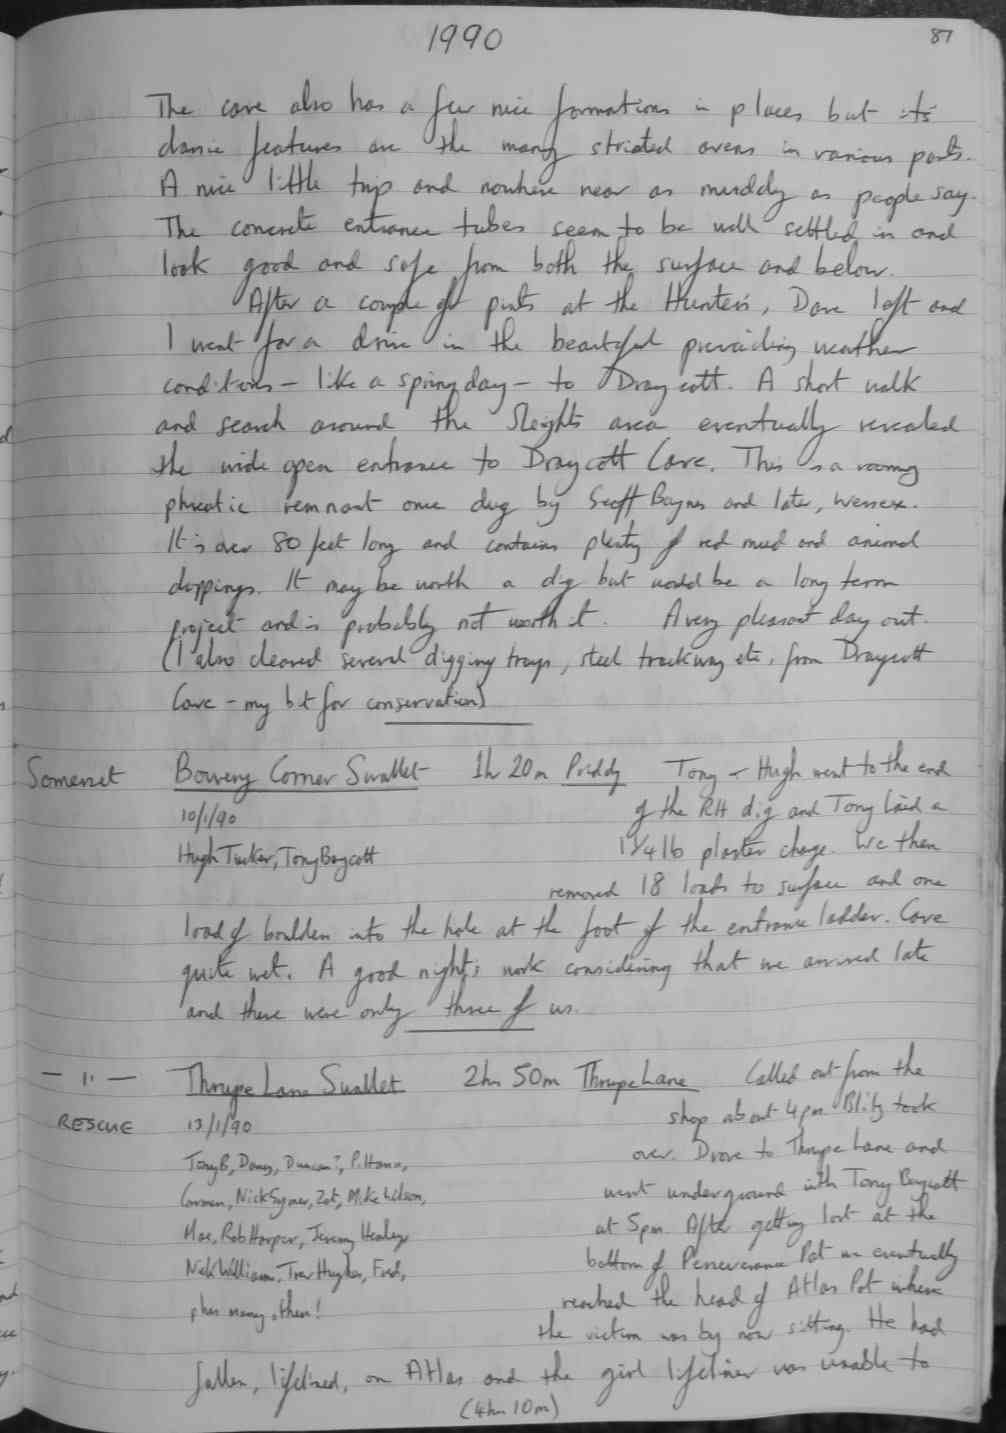 1990
87
The cave also has a few nice formations in places but its
classic features are the many striated avens in various parts.
A nice little trip and nowhere near as muddy as people say.
The concrete entrance tubes seem to be well settled in and
look good and safe from both the surface and below.
After a couple of pints at the Hunters, Dave left and
I went for a drive in the beautiful prevailing weather
conditions - like a spring day - to Draycott. A short walk
and search around the Sleights area eventually revealed
the wide open entrance to Draycott Cave. This is a roomy
phreatic remnant once dug by Geoff Baynes and later, Wessex.
It is over 80 feet long and contains plenty of red mud and animal
droppings. It may be worth a dig but would be a long term
project and is probably not worth it. A very pleasant day out.
(I also cleared several digging trays, steel trackway etc. from Draycott
Cave - my bit for conservation)
Somerset Bowery Corner Swallet 1h 20m Priddy Tony + Hugh went to the end
10/1/90 of the RH dig and Tony laid a
Hugh Tucker, Tony Boycott 1 1/4 lb plaster charge. We then
removed 18 loads to surface and one
load of boulders into the hole at the foot of the entrance ladder. Cave
quite wet. A good night's work considering that we arrived late
and there were only three of us.
- " - Thrupe Lane Swallet 2hrs 50m Thrupe Lane Called out from the
RESCUE 13/1/90 shop about 4pm. Blitz took
TonyB, Dany, Duncan?, P. Hann, over. Drove to Thrupe Lane and
Carmen, Nick Gymer, Zot, Mike Wilson, went underground with Tony Boycott
Mac, Rob Harper, Jeremy Henley, at 5pm. After getting lost at the
Nick Williams, Trev Hughes, Fred, bottom of Perseverance Pot we eventually
plus many others! reached the head of Atlas Pot where
the victim was by now sitting. He had
fallen, lifelined, on Atlas and the girl lifeliner was unable to
(4hrs 10m)